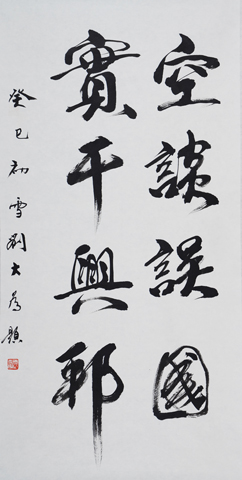 空談誤國
實干興邦
癸巳初雪劉大為題